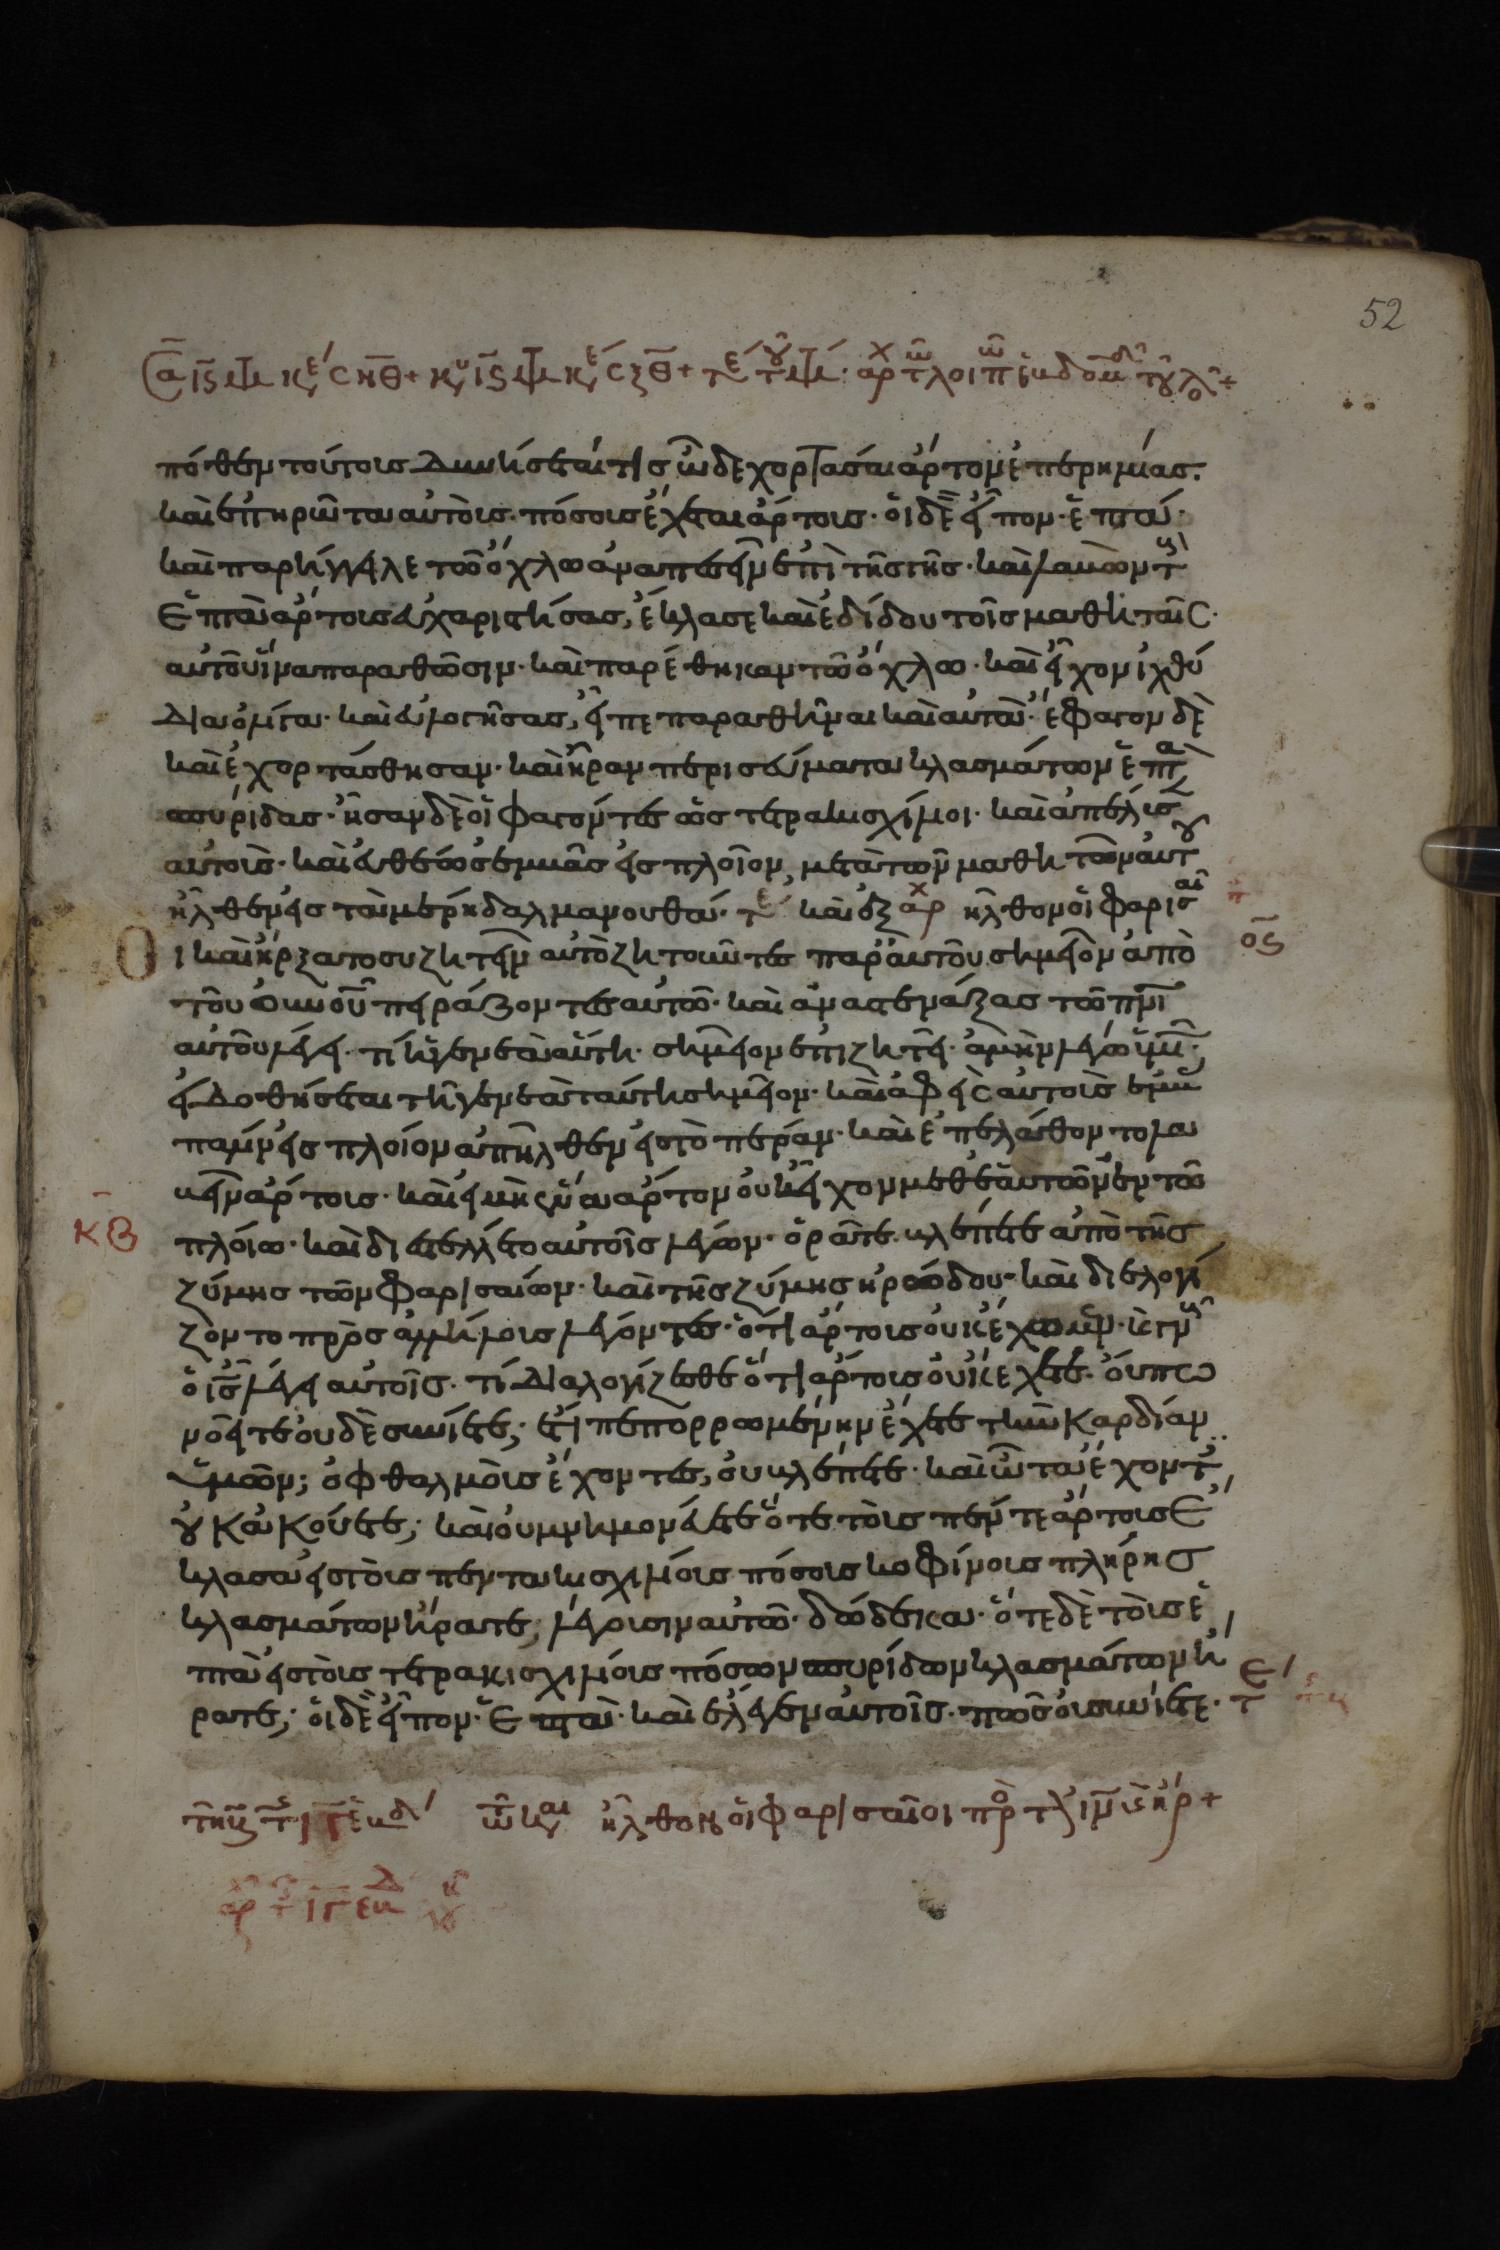 52
πόθεν τούτοις δυνήσεταί τις ὧδε χορτάσαι ἄρτον ἐπ ερημίας.
καὶ ἐπηρώτα αὐτοὺς· πόσους ἔχεται ἄρτους· οἱ δὲ εἶπον· ἑπτά·
καὶ παρήγγειλε τῶ ὄχλω ἀναπεσεῖν ἐπὶ τῆς γῆς· καὶ λαβὼν τ
ἑπτὰ ἄρτους εὐχαριστήσας, ἔκλασε καὶ ἐδίδου τοῖς μαθηταῖς
αὐτοῦ ἵνα παραθῶσιν· καὶ παρέθηκαν τῶ ὄχλω· καὶ εἶχον ἰχθύ
δια ὀλίγα· καὶ εὐλογήσας, εἶπε παραθῆναι καὶ αὐτά· ἔφαγον δὲ
καὶ ἐχορτάσθησαν· καὶ ἦραν περισσεύματα κλασμάτων ἑπτὰ
σπυρίδας· ἦσαν δὲ οἱ φαγόντες ὡς τετρακισχίλιοι· καὶ ἀπέλυσ
αὐτοὺς· καὶ εὐθέως ἐμβὰς εἰς πλοῖον, μετὰ τῶν μαθητῶν αὐτοῦ
ἦλθεν εἰς τὰ μέρη δαλμανουθά· καὶ ἐξ ἦλθον οἱ φαρισαῖ
οι καὶ ἤρξατο συζητεῖν αὐτὸ ζητοῦντες παρ αὐτοῦ σημεῖον ἀπὸ
οϛ
τοῦ οὐνοῦ πειράζοντες αὐτῶ· καὶ ἀναστενάξας τῶ πνι
αὐτοῦ λέγει· τί ἡ γενεὰ αὕτη· σημεῖον ἐπιζητεῖ· ἀμὴν λέγω ὑμῖν·
εἰ δοθήσεται τῆ γενεὰ ταύτη σημεῖον· καὶ ἀφεὶς αὐτοὺς ἐμβὰς
πάλιν εἰς πλοίον ἀπῆλθεν εἰς τὸ πέραν· καὶ ἐπελάθοντο λα
βεῖν ἄρτους· καὶ εἰ μὴ ἕνα ἄρτον οὐκ εἶχον μεθ ἑαυτῶν ἐν τῶ
ΚΒ
πλοίω· καὶ διεστέλλετο αὐτοῖς λέγων· ὁρᾶτε· βλέπετε ἀπὸ τῆς
ζύμης τῶν φαρισαίων· καὶ τῆς ζύμης ἡρώδου· καὶ διελογί
ζοντο πρὸς ἀλλήλους λέγοντες· ὅτι ἄρτους οὐκ ἔχωμεν·
ὁ ις λέγει αὐτοῖς· τί διαλογίζεσθε ὅτι ἄρτους οὐκ ἔχετε· οὔπω
νοεῖτε οὐδὲ συνίετε; ἔτι πεπορρωμένην ἔχετε τὴν καρδίαν
ὑμῶν; ὀφθαλμοὺς ἔχοντες, οὐ βλέπετε· καὶ ὦτα ἔχοντ
οὐκ ἀκούετε; καὶ οὐ μνημονεύετε ὅτε τοὺς πέντε ἄρτους ἔ
κλασα εἰς τοὺς πεντακισχιλίους πόσους κοφίνους πλήρης
κλασμάτων ἤρατε; λέγουσιν αὐτῶ· δώδεκα· ὅτε δὲ τοὺς ἑ
πτὰ εἰς τοὺς τετρακισχιλίους πόσων σπυρίδων κλασμάτων ἤ
ρατε; οἱ δὲ εἶπον· ἑπτά· καὶ ἔλεγεν αὐτοῖς· πῶς οὐ συνίετε·
ἦλθον οἱ φαρισαῖοι πρ